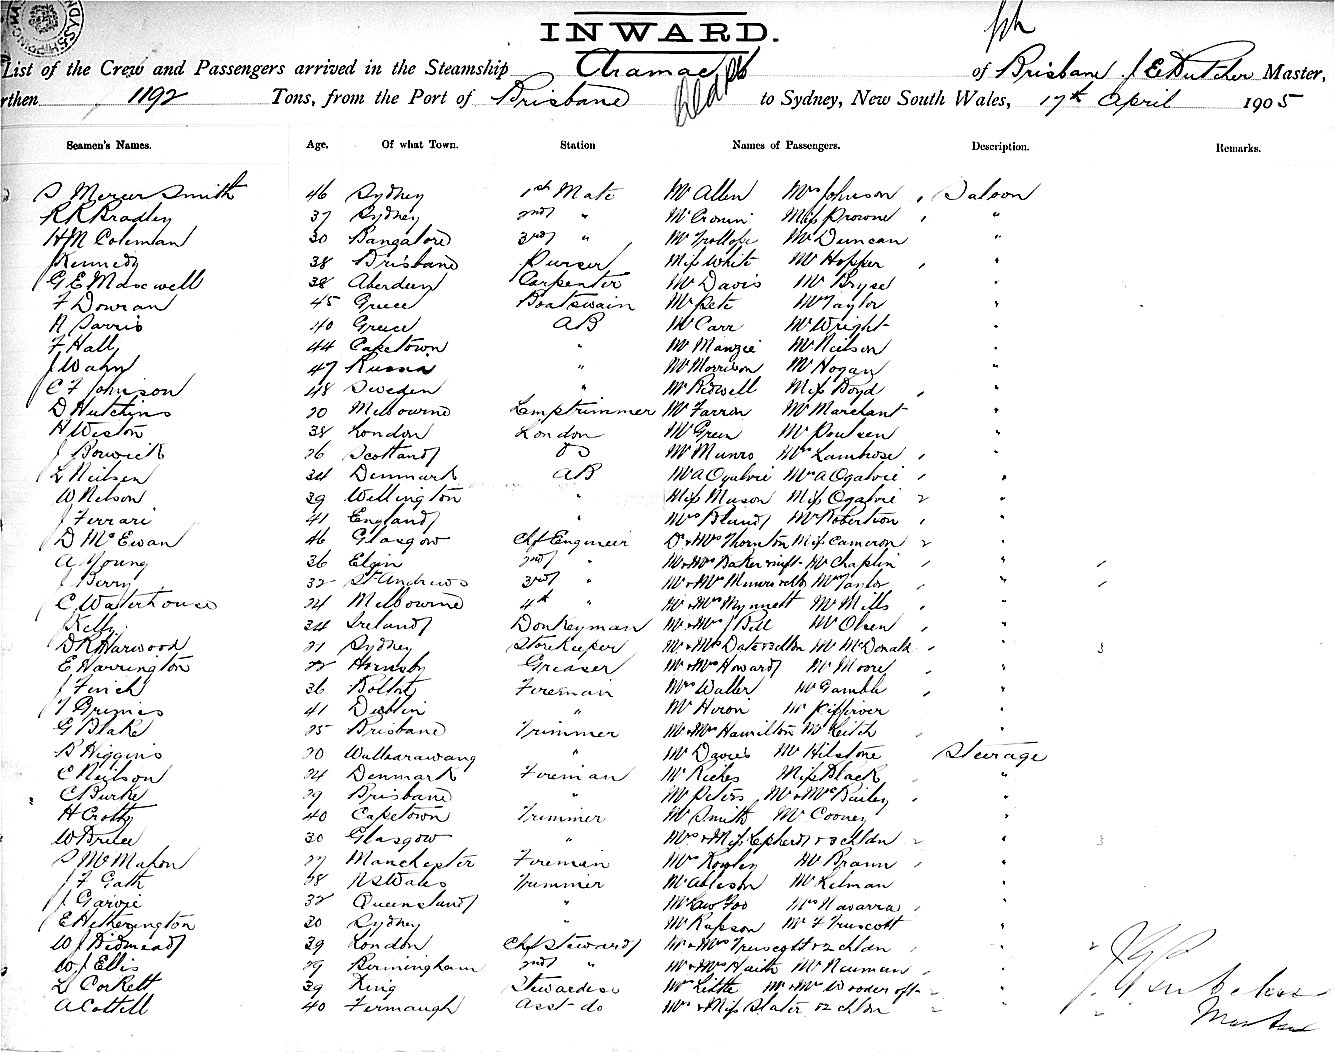 INWARD.
List of the Crew and Passengers arrived in the Steamship Aramac of Brisbane, J E Butcher Master,
rthen 1192 Tons, from the Port of Brisbane to Sydney, New South Wales, 17th April 1905
Seamen's Names. Age. Of what Town. Station Names of Passengers. Description. Remarks.
S Mercer Smith 46 Sydney 1st Mate Mr Allen Mrs Johnson Saloon
R R Bradley 37 Sydney 2nd " Mr Cronin Miss Browne "
H N Coleman 30 Bangalore 3rd " Mr Trollope Mr Duncan "
J Kennedy 38 Brisbane Purser Miss White Mr Hopper "
G E Maxwell 38 Aberdeen Carpenter Mr Davis Mr Bryse "
F Dowran 45 Greece Boatswain Mr Pete Mr Taylor "
N Sarris 40 Greece AB Mr Carr Mr Wright "
F Hall 44 Capetown " Mr Manzie Mr Neilson "
J Wahn 47 Russia " Mr Morrison Mr Hogan "
C F Johnson 48 Sweden " Mr Bidwell Miss Boyd "
D Hutchins 20 Melbourne Lamptrimmer Mr Farron Mr Marchant "
H Weston 38 London London Mr Green Mr Poulsen "
J Borwick 26 Scotland OS Mr Munro Mrs Lambrose "
L Neilsen 34 Denmark AB Mr A Ogalvie Mrs A Ogalvie "
W Nelson 39 Wellington " Miss Mason Miss Ogalvie "
J Ferrari 41 England " Mrs Blund Mr Robertson "
D McEwan 46 Glasgow Chf Engineer Dr & Mrs Thornton Miss Cameron "
A Young 36 Elgin 2nd " Mr & Mrs Baker & inft Mr Chaplin "
J Berry 32 St Andrews 3rd " Mr & Mrs Munro Mr Taylor "
C Waterhouse 24 Melbourne 4th " Mr & Mrs Mynnett Mr Mills "
J Kelly 34 Ireland Donkeyman Mr & Mrs J Bell Mr Olsen "
D R Harwood 21 Sydney Storekeeper Mr & Mrs Date & 3 chldn Mr McDonald " 3
E Harrington 22 Hornsby Greaser Mr & Mrs Howard Mr Moore "
J Finch 36 Fireman Mrs Waller Mr Gamble "
T Grimes 41 Dublin " Mr Heron "
G Blake 25 Brisbane Trimmer Mr & Mrs Hamilton Mr Leitch "
B Higgins 20 Wallerawang " Mr Davies Mr Hilstone Steerage
C Neilson 24 Denmark Fireman Mr Riches Miss Black "
C Burke 29 Brisbane " Mr Peters Mr & Mrs Bailey "
H Crotty 40 Capetown Trimmer Mr Smith Mr Cooney "
W Bruce 30 Glasgow " Mrs & Miss & 3 chldn " 3
S McMahon 27 Manchester Fireman Mrs Mr Braun "
J F Gath 28 N S Wales Trimmer Mr Mr Kilman "
J Garvie 32 Queensland " Mr Law Foo Mrs Navarra "
E Hetherington 20 Sydney Mr Rapson Mr F Truscott "
W J Bidmead 39 London Chf Steward Mr & Mrs Truscott & 2 chldn "
W J Ellis 29 Birmingham 2nd " Mr & Mrs Haith Mr Neuman "
L Corkett 39 King Stewardess Mr Little Mr & Mrs Woodcroft "
A Cottell 40 Fermaugh Asst do Mrs & Miss Slater & 2 chldn "
Master